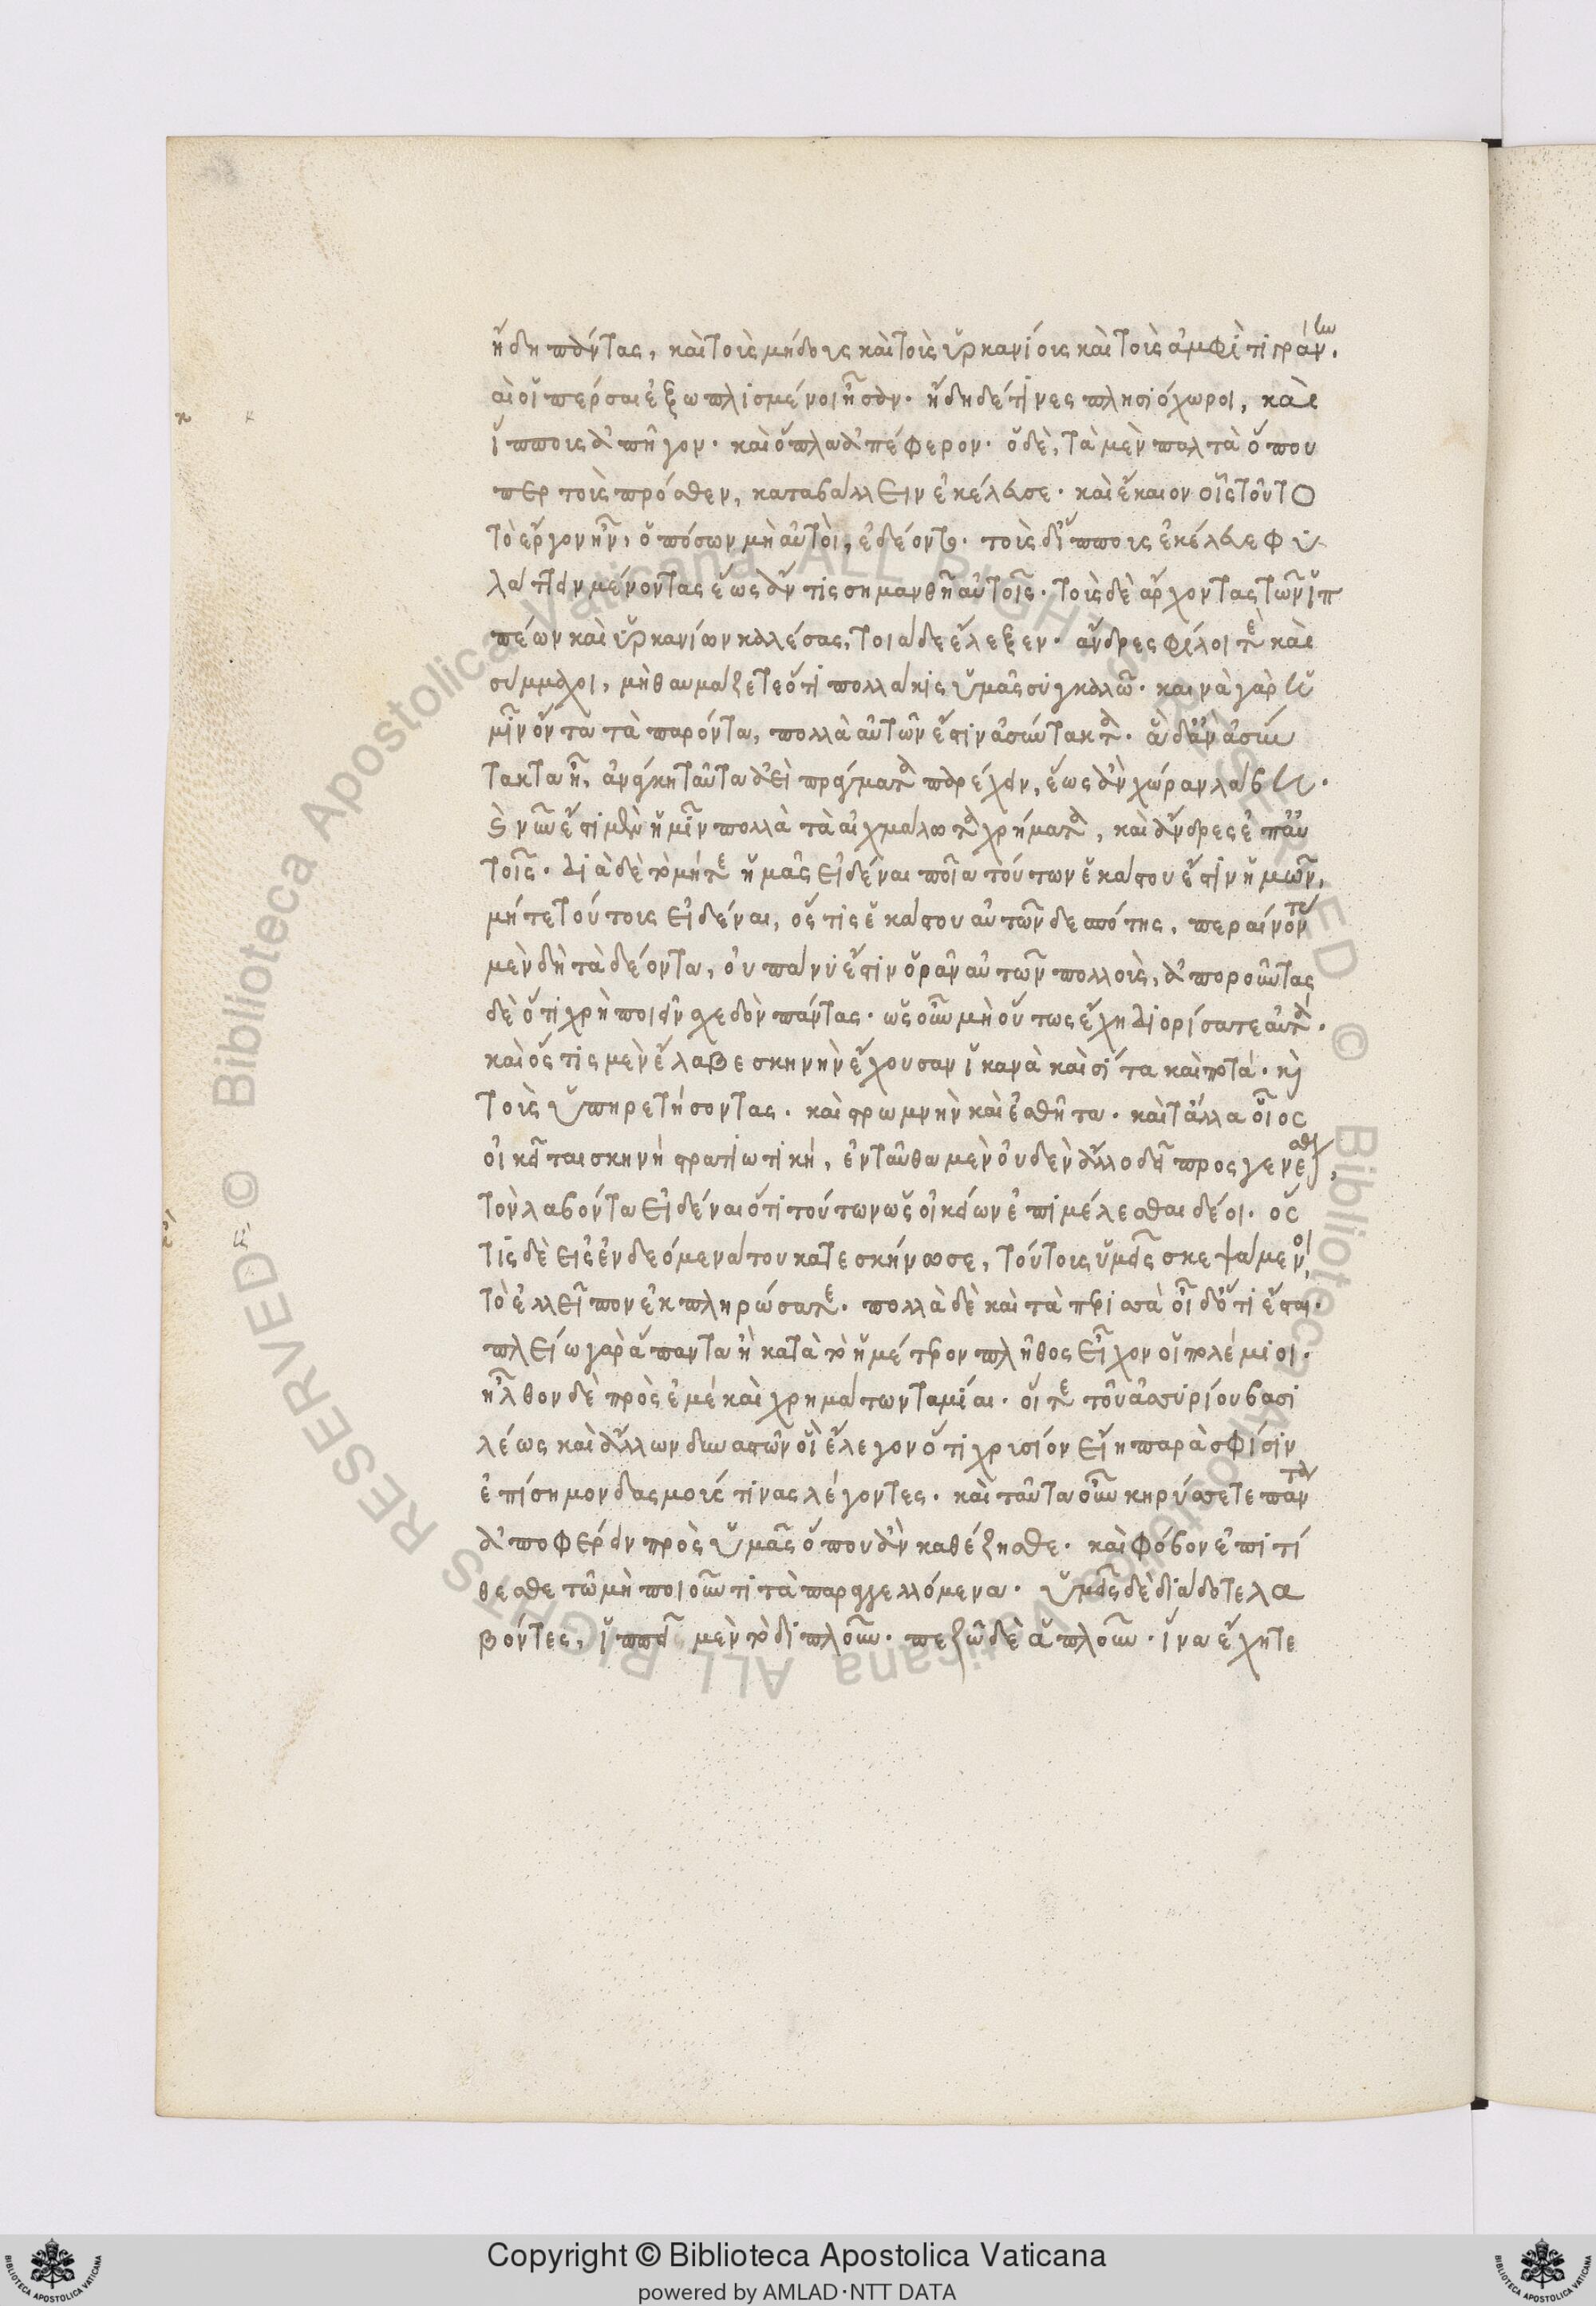 ἤδη πάντας, καὶ τοὺς μήδους καὶ τοὺς ὑρκανίους καὶ τοὺς ἀμφὶ τιγράνην.
καὶ οἱ πέρσαι ἐξωπλισμένοι ἦσαν. ἤδη δέ τινες πλησιόχωροι, καὶ
ἵππους ἀπῆγον. καὶ ὅπλα ἀπέφερον. ὁ δὲ, τὰ μὲν παλτὰ ὅπου
περ τοὺς πρόσθεν, καταβάλλειν ἐκέλευσε. καὶ ἔκαιον οἷς τοῦτο
τὸ ἔργον ἦν, ὁπόσων μὴ αὐτοὶ, ἐδέοντο. τοὺς δ' ἵππους ἐκέλευε φυ
λάττειν μένοντας ἕως ἄν τις σημανθῆ αὐτοῖς. τοὺς δὲ ἄρχοντας τῶν ἱπ
πέων καὶ ὑρκανίων καλέσας, τοιάδε ἔλεξεν. ἄνδρες φίλοι τε καὶ
σύμμαχοι, μὴ θαυμάζετε ὅτι πολλάκις ὑμᾶς συγκαλῶ. καινὰ γὰρ ἡ
μῖν ὄντα τὰ παρόντα, πολλὰ αὐτῶν ἐστὶν ἀσύντακτα. ἃ δ' ἂν ἀσύν
τακτα ἦ, ἀνάγκη ταῦτα ἀεὶ πράγματα παρέχειν, ἕως ἂν χώραν λάβη.
καὶ νῦν ἔστι μὲν ἡμῖν πολλὰ τὰ αἰχμάλωτα χρήματα, καὶ ἄνδρες ἐπ' αὐ
τοῖς. διὰ δὲ τὸ μήτε ἡμᾶς εἰδέναι ποῖα τούτων ἑκάστου ἐστὶν ἡμῶν,
μήτε τούτους εἰδέναι, ὅστις ἑκάστου αὐτῶν δεσπότης, περαίνοντας
μὲν δὴ τὰ δέοντα, οὐ πάνυ ἔστιν ὁρᾶν αὐτῶν πολλοὺς, ἀποροῦντας
δὲ ὅτι χρὴ ποιεῖν σχεδὸν πάντας. ὡς οὖν μὴ οὕτως ἔχη διορίσατε αὐτά.
καὶ ὅστις μὲν ἔλαβε σκηνὴν ἔχουσαν ἱκανὰ καὶ σῖτα καὶ ποτά. καὶ
τοὺς ὑπηρετήσοντας. καὶ στρωμνὴν καὶ ἐσθῆτα. καὶ τἄλλα οἷος
οἰκεῖται σκηνὴ στρατιωτικὴ, ἐνταῦθα μὲν οὐδὲν ἄλλο δεῖ προσγενέσθαι,
τὸν λαβόντα εἰδέναι ὅτι τούτων ὡς οἰκείων ἐπιμέλεσθαι δέοι. ὅς
τις δὲ εἰς ἐνδεόμενά του κατεσκήνωσε, τούτοις ὑμεῖς σκεψάμενοι,
τὸ ἐλλεῖπον ἐκπληρώσατε. πολλὰ δὲ καὶ τὰ περισσὰ οἶδ' ὅτι ἔσται.
πλείω γὰρ ἅπαντα ἢ κατὰ τὸ ἡμέτερον πλῆθος εἶχον οἱ πολέμιοι.
ἦλθον δὲ πρὸς ἐμὲ καὶ χρημάτων ταμίαι. οἵ τε τοῦ ἀσσυρίου βασι
λέως καὶ ἄλλων δυναστῶν οἳ ἔλεγον ὅτι χρυσίον εἴη παρὰ σφίσιν
ἐπίσημον δασμούς τινας λέγοντες. καὶ ταῦτα οὖν κηρύσσετε πάντα
ἀποφέρειν πρὸς ὑμᾶς ὅπου ἂν καθέζησθε. καὶ φόβον ἐπιτί
θεσθε τῶ μὴ ποιοῦντι τὰ παραγγελλόμενα. ὑμεῖς δὲ διάδοτε λα
βόντες, ἱππεῖ μὲν τὸ διπλοῦν. πεζῶ δὲ ἁπλοῦν. ἵνα ἔχητε
Copyright © Biblioteca Apostolica Vaticana
powered by AMLAD·NTT DATA